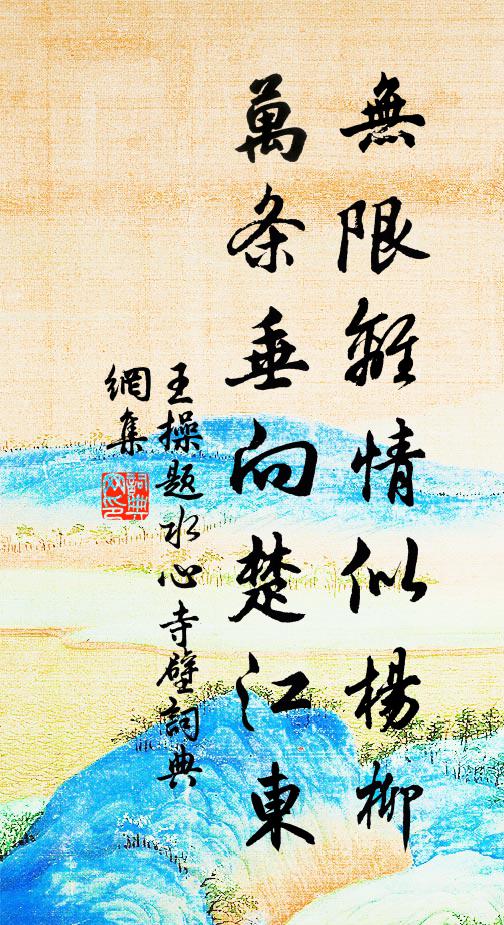 無限離情似楊柳
萬条垂向楚江東
王操題水心寺壁詞典
網集
詞典